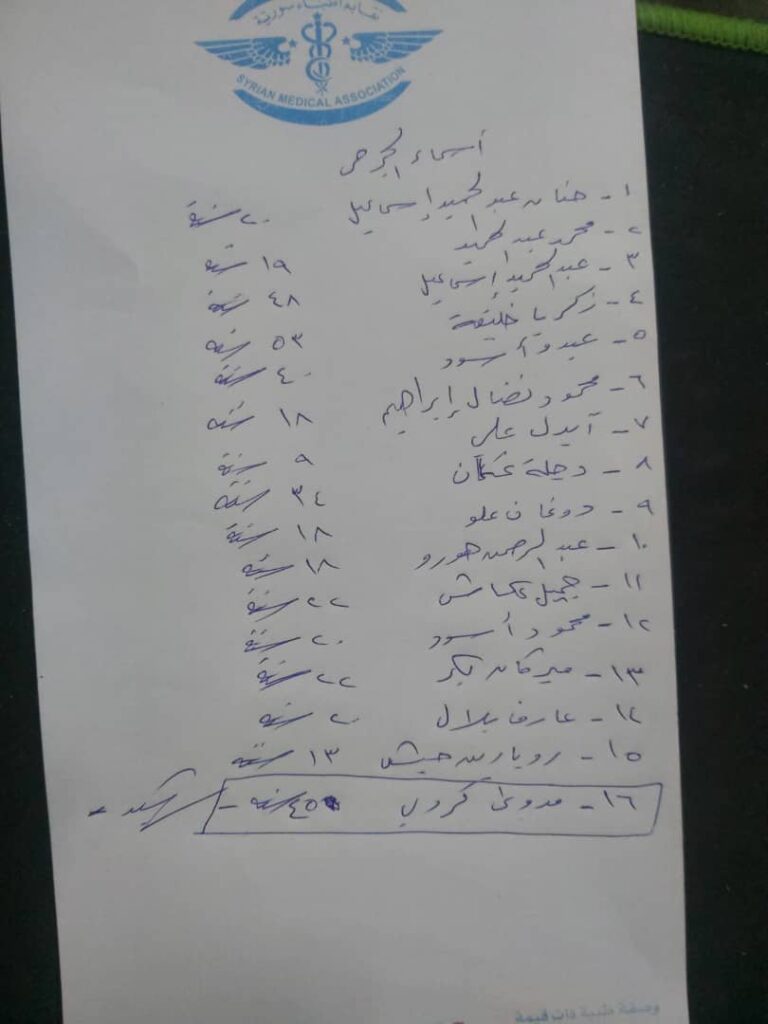 نقابة أطباء سورية
SYRIAN MEDICAL ASSOCIATION
أسماء الجرحى
١ - حنان عبد الحميد إسماعيل ٢٠ سنة
٢ - محمد عبد الحميد ١٩ سنة
٣ - عبد الحميد إسماعيل ٤٨ سنة
٤ - زكريا خليفة ٥٣ سنة
٥ - عبدو أسود ٤٠ سنة
٦ - محمود نضال إبراهيم ١٨ سنة
٧ - آيدل علي ٩ سنة
٨ - دجلة عثمان ٣٤ سنة
٩ - دوغان علو ١٨ سنة
١٠ - عبد الرحمن هورو ١٨ سنة
١١ - جميل ٢٢ سنة
١٢ - محمود أسود ٢٠ سنة
١٣ - ميركان بكر ٢٢ سنة
١٤ - عارف بلال ٢٠ سنة
١٥ - رويارين حبش ١٣ سنة
١٦ - كردي ٤٥ سنة -
وصفة طبية ذات قيمة